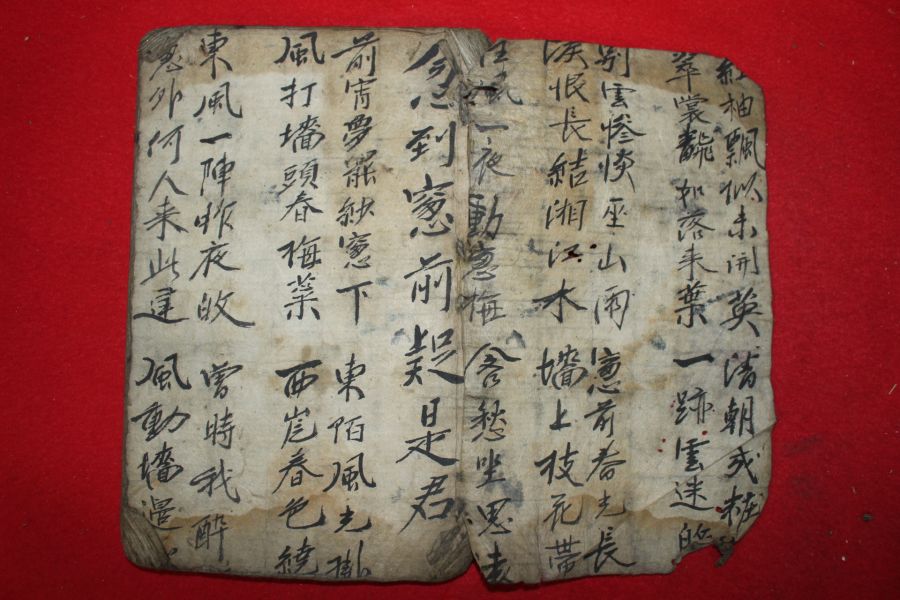 紅袖飄似未開英 清朝或粧
翠裳飜如落来葉 一跡雲迷
別雲慘惔巫山雨 窓前春光長
淚恨長結湘江水 墻上枝花帶
一夜動窓梅 含愁坐思
忽到窓前疑是君
前宵夢罷紗窓下 東陌風光
風打墻頭春梅葉 西崑春色繞
東風一陣昨夜 當時我醉
窓外何人来此 風動墻邊